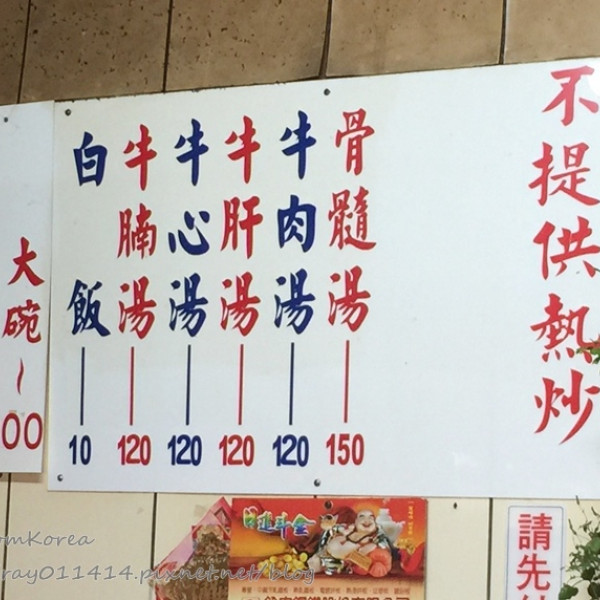 不提供熱炒
骨髓湯 150
牛肉湯 120
牛肝湯 120
牛心湯 120
牛腩湯 120
白飯 10
大碗~
00
進斗金
請先
omKorea
ray011414.pixnet.net/blog